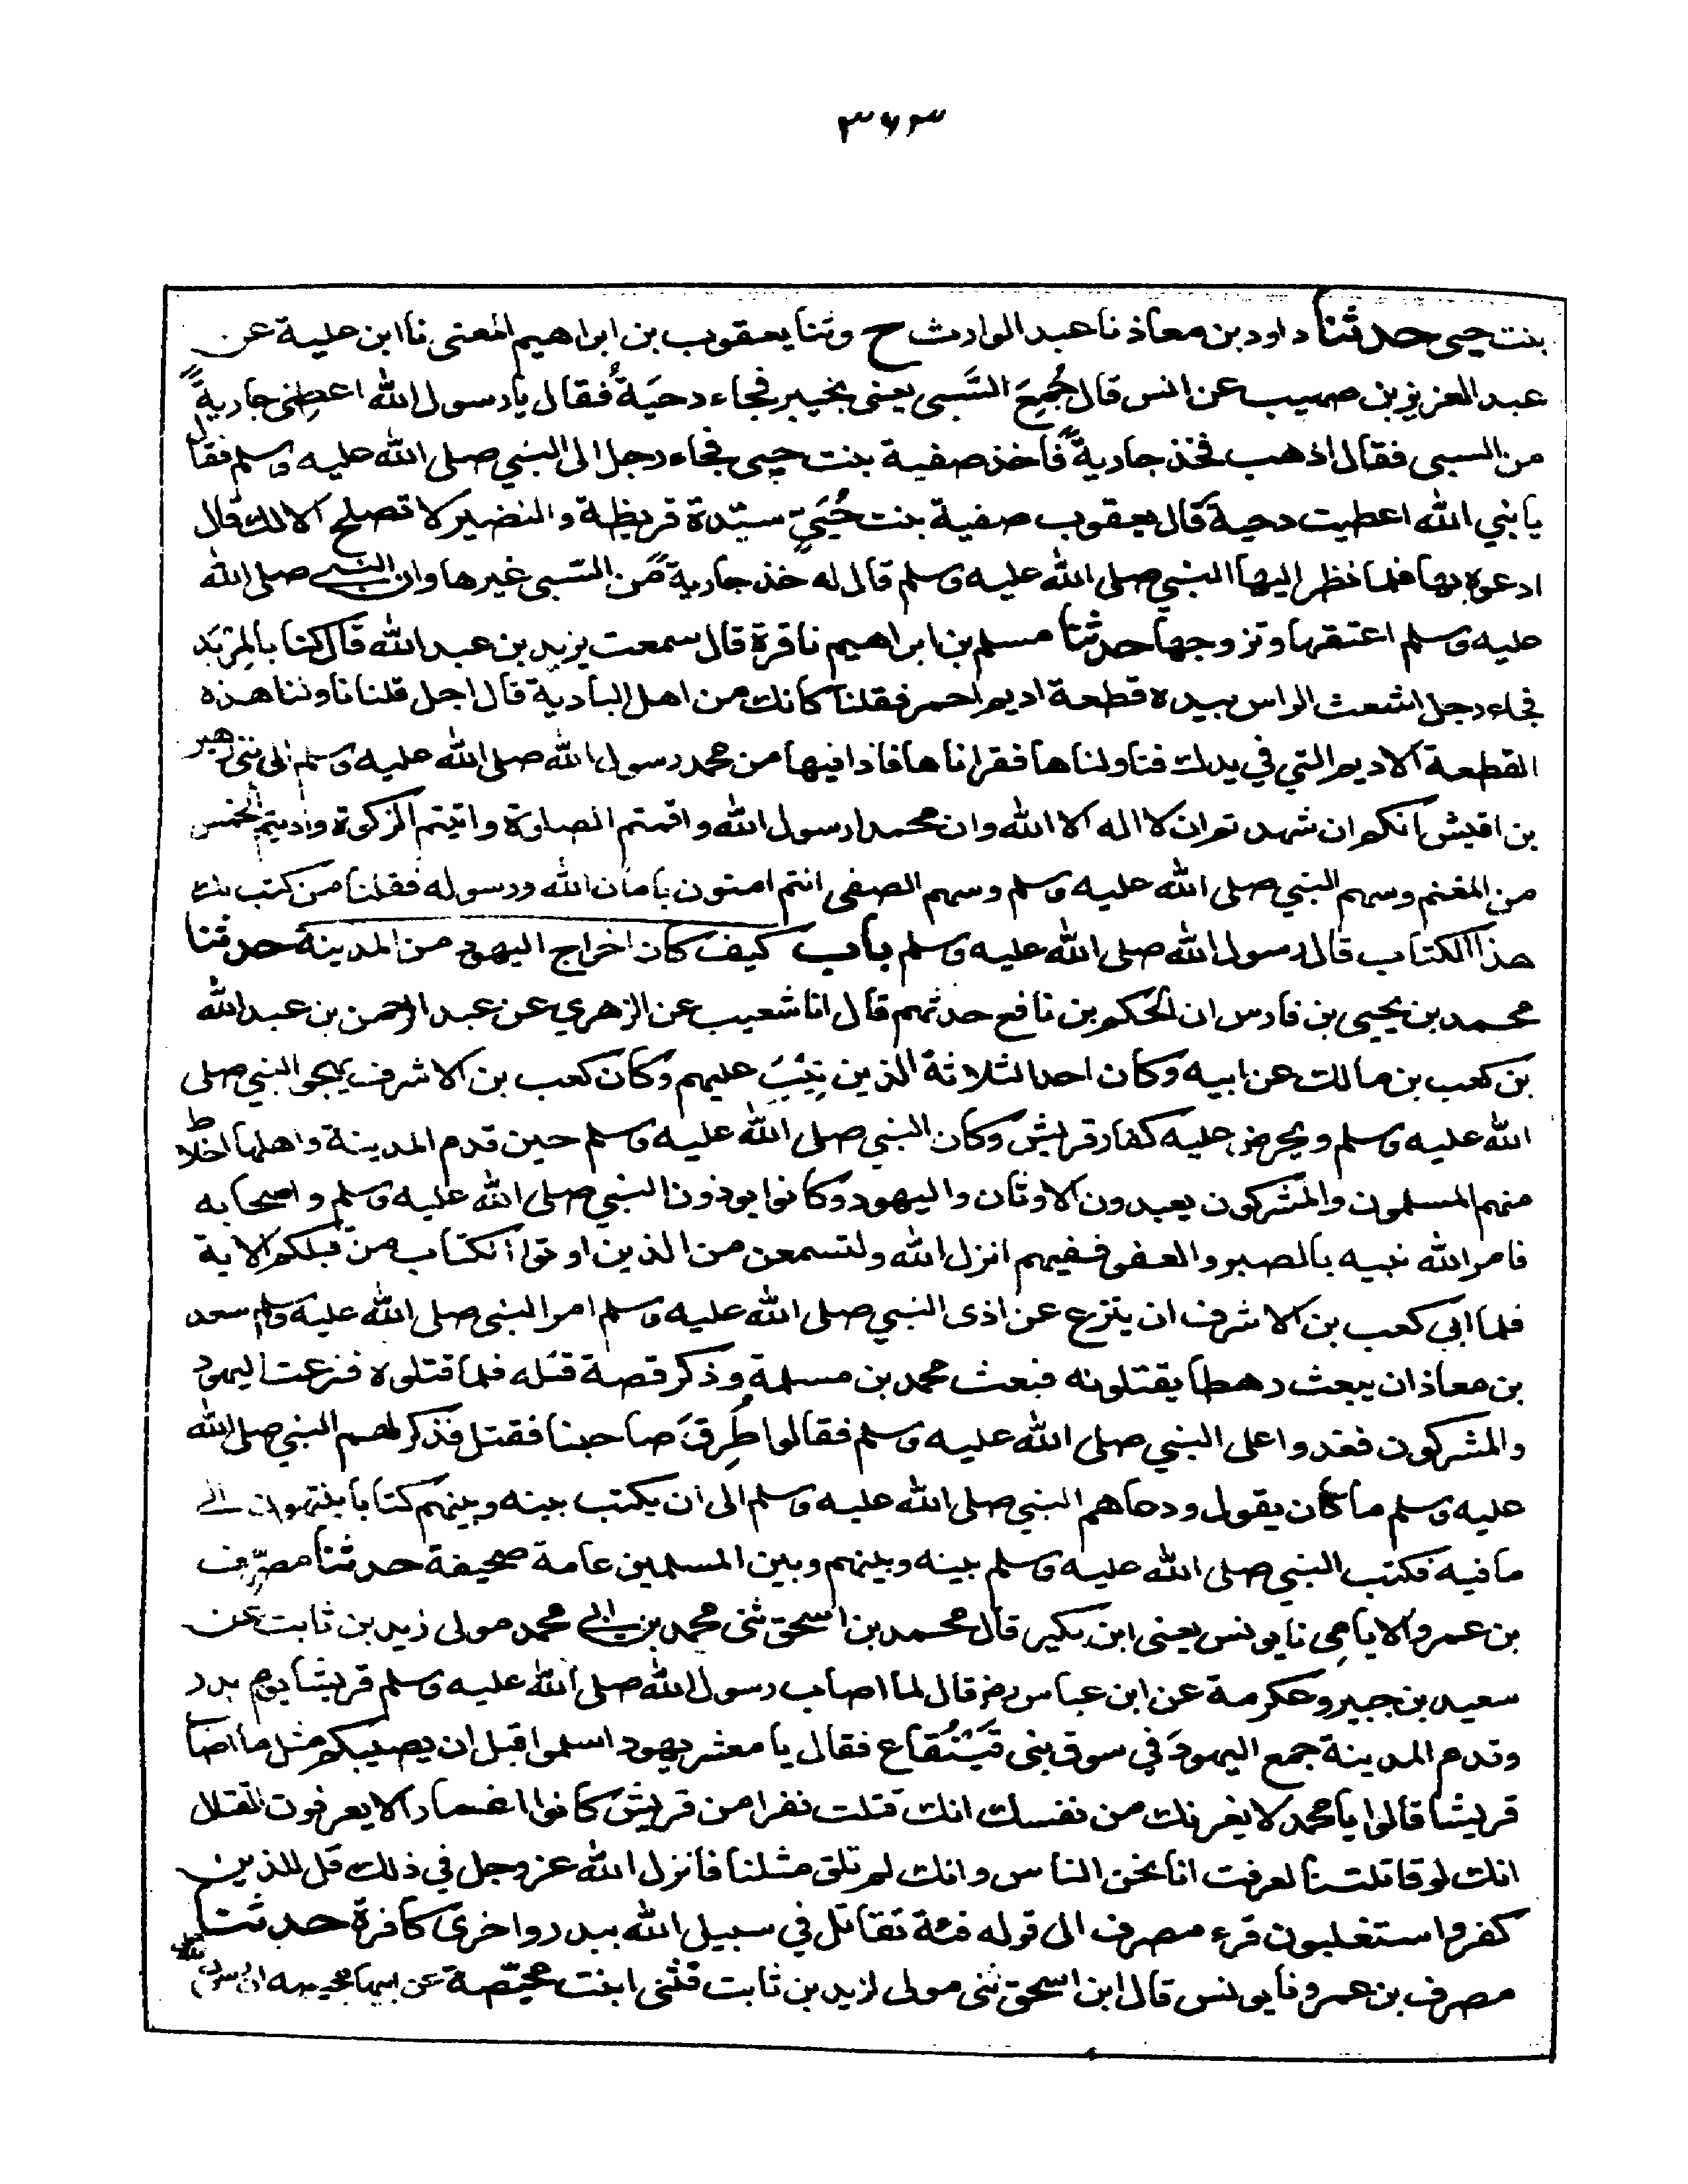 ٣٦٣
بنت حيى حدثنا داود بن معاذ نا عبد الوارث ح وثنا يعقوب بن ابراهيم المعنى نا ابن علية عن
عبد العزيز بن صهيب عن انس قال جُمِعَ السَّبى يعنى بخيبر فجاء دحيَةُ فقال يا رسول الله اعطِنى جاريةً
من السبى فقال اذهب فخذ جاريةً فاخذ صفية بنت حيى فجاء رجل الى النبي صلى الله عليه وسلم فقال
يا نبي الله اعطيت دحية قال يعقوب صفية بنت حُيَيٍّ سيّدة قريظة والنضير لا تصلح الا لك قال
ادعوه بها فلما نظر اليها النبي صلى الله عليه وسلم قال له خذ جاريةً من السّبى غيرها وان النبي صلى الله
عليه وسلم اعتقها وتزوجها حدثنا مسلم بن ابراهيم نا قرة قال سمعت يزيد بن عبد الله قال كنا بالمِرْبَد
فجاء رجل اشعث الراس بيده قطعة اديم احمر فقلنا كانك من اهل البادية قال اجل قلنا ناولنا هذه
القطعة الاديم التي في يدك فناولناها فقراناها فاذا فيها من محمد رسول الله صلى الله عليه وسلم الى بنى زهير
بن اقيش انكم ان شهدتم ان لا اله الا الله وان محمدا رسول الله واقمتم الصلوة واتيتم الزكوة واديتم الخمس
من المغنم وسهم النبي صلى الله عليه وسلم وسهم الصفى انتم امنون بامان الله ورسوله فقلنا من كتب لك
هذا الكتاب قال رسول الله صلى الله عليه وسلم باب كيف كان اخراج اليهود من المدينة حدثنا
محمد بن يحيى بن فارس ان الحكم بن نافع حدثهم قال انا شعيب عن الزهري عن عبد الرحمن بن عبد الله
بن كعب بن مالك عن ابيه وكان احد الثلاثة الذين تِيْبَ عليهم وكان كعب بن الاشرف يهجو النبي صلى
الله عليه وسلم ويحرض عليه كفار قريش وكان النبي صلى الله عليه وسلم حين قدم المدينة واهلها اخلاط
منهم المسلمون والمشركون يعبدون الاوثان واليهود وكانوا يوذون النبي صلى الله عليه وسلم واصحابه
فامر الله نبيه بالصبر والعفو ففيهم انزل الله ولتسمعن من الذين اوتوا الكتاب من قبلكم الاية
فلما ابي كعب بن الاشرف ان ينزع عن اذى النبي صلى الله عليه وسلم امر النبى صلى الله عليه وسلم سعد
بن معاذ ان يبعث رهطا يقتلونه فبعث محمد بن مسلمة وذكر قصة قتله فلما قتلوه فزعت اليهود
والمشركون فغدوا على النبي صلى الله عليه وسلم فقالوا طُرِقَ صاحبنا فقتل فذكر لهم النبي صلى الله
عليه وسلم ما كان يقول ودعاهم النبي صلى الله عليه وسلم الى ان يكتب بينه وبينهم كتابا ينتهون الى
ما فيه فكتب النبي صلى الله عليه وسلم بينه وبينهم وبين المسلمين عامة صحيفة حدثنا مصرّف
بن عمرو الايامِى نا يونس يعنى ابن بكير قال محمد بن اسحق ثنى محمد بن ابى محمد مولى زيد بن ثابت عن
سعيد بن جبير وعكرمة عن ابن عباس رض قال لما اصاب رسول الله صلى الله عليه وسلم قريشا يوم بدر
وقدم المدينة جمع اليهودَ في سوق بنى قَيْنُقاع فقال يا معشر يهود اسلموا قبل ان يصيبكم مثل ما اصاب
قريشا قالوا يا محمد لا يغرنك من نفسك انك قتلت نفرا من قريش كانوا اغمارا لا يعرفون القتال
انك لو قاتلتنا لعرفت انا نحن الناس وانك لم تلق مثلنا فانزل الله عز وجل في ذلك قل للذين
كفروا ستغلبون قرء مصرف الى قوله فئة تقاتل في سبيل الله ببدر واخرى كافرة حدثنا
مصرف بن عمرو نا يونس قال ابن اسحق ثنى مولى لزيد بن ثابت قثنى ابنت محيّصة عن ابيها محيصه ان رسول